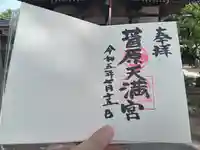 奉拝
菅原天満宮
令和五年廿月十五日